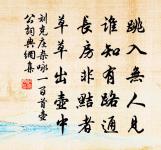 跳入無人見
誰知有路通
長房非黠者
草草出壺中
劉克庄杂咏一百首壺
公詞典網集